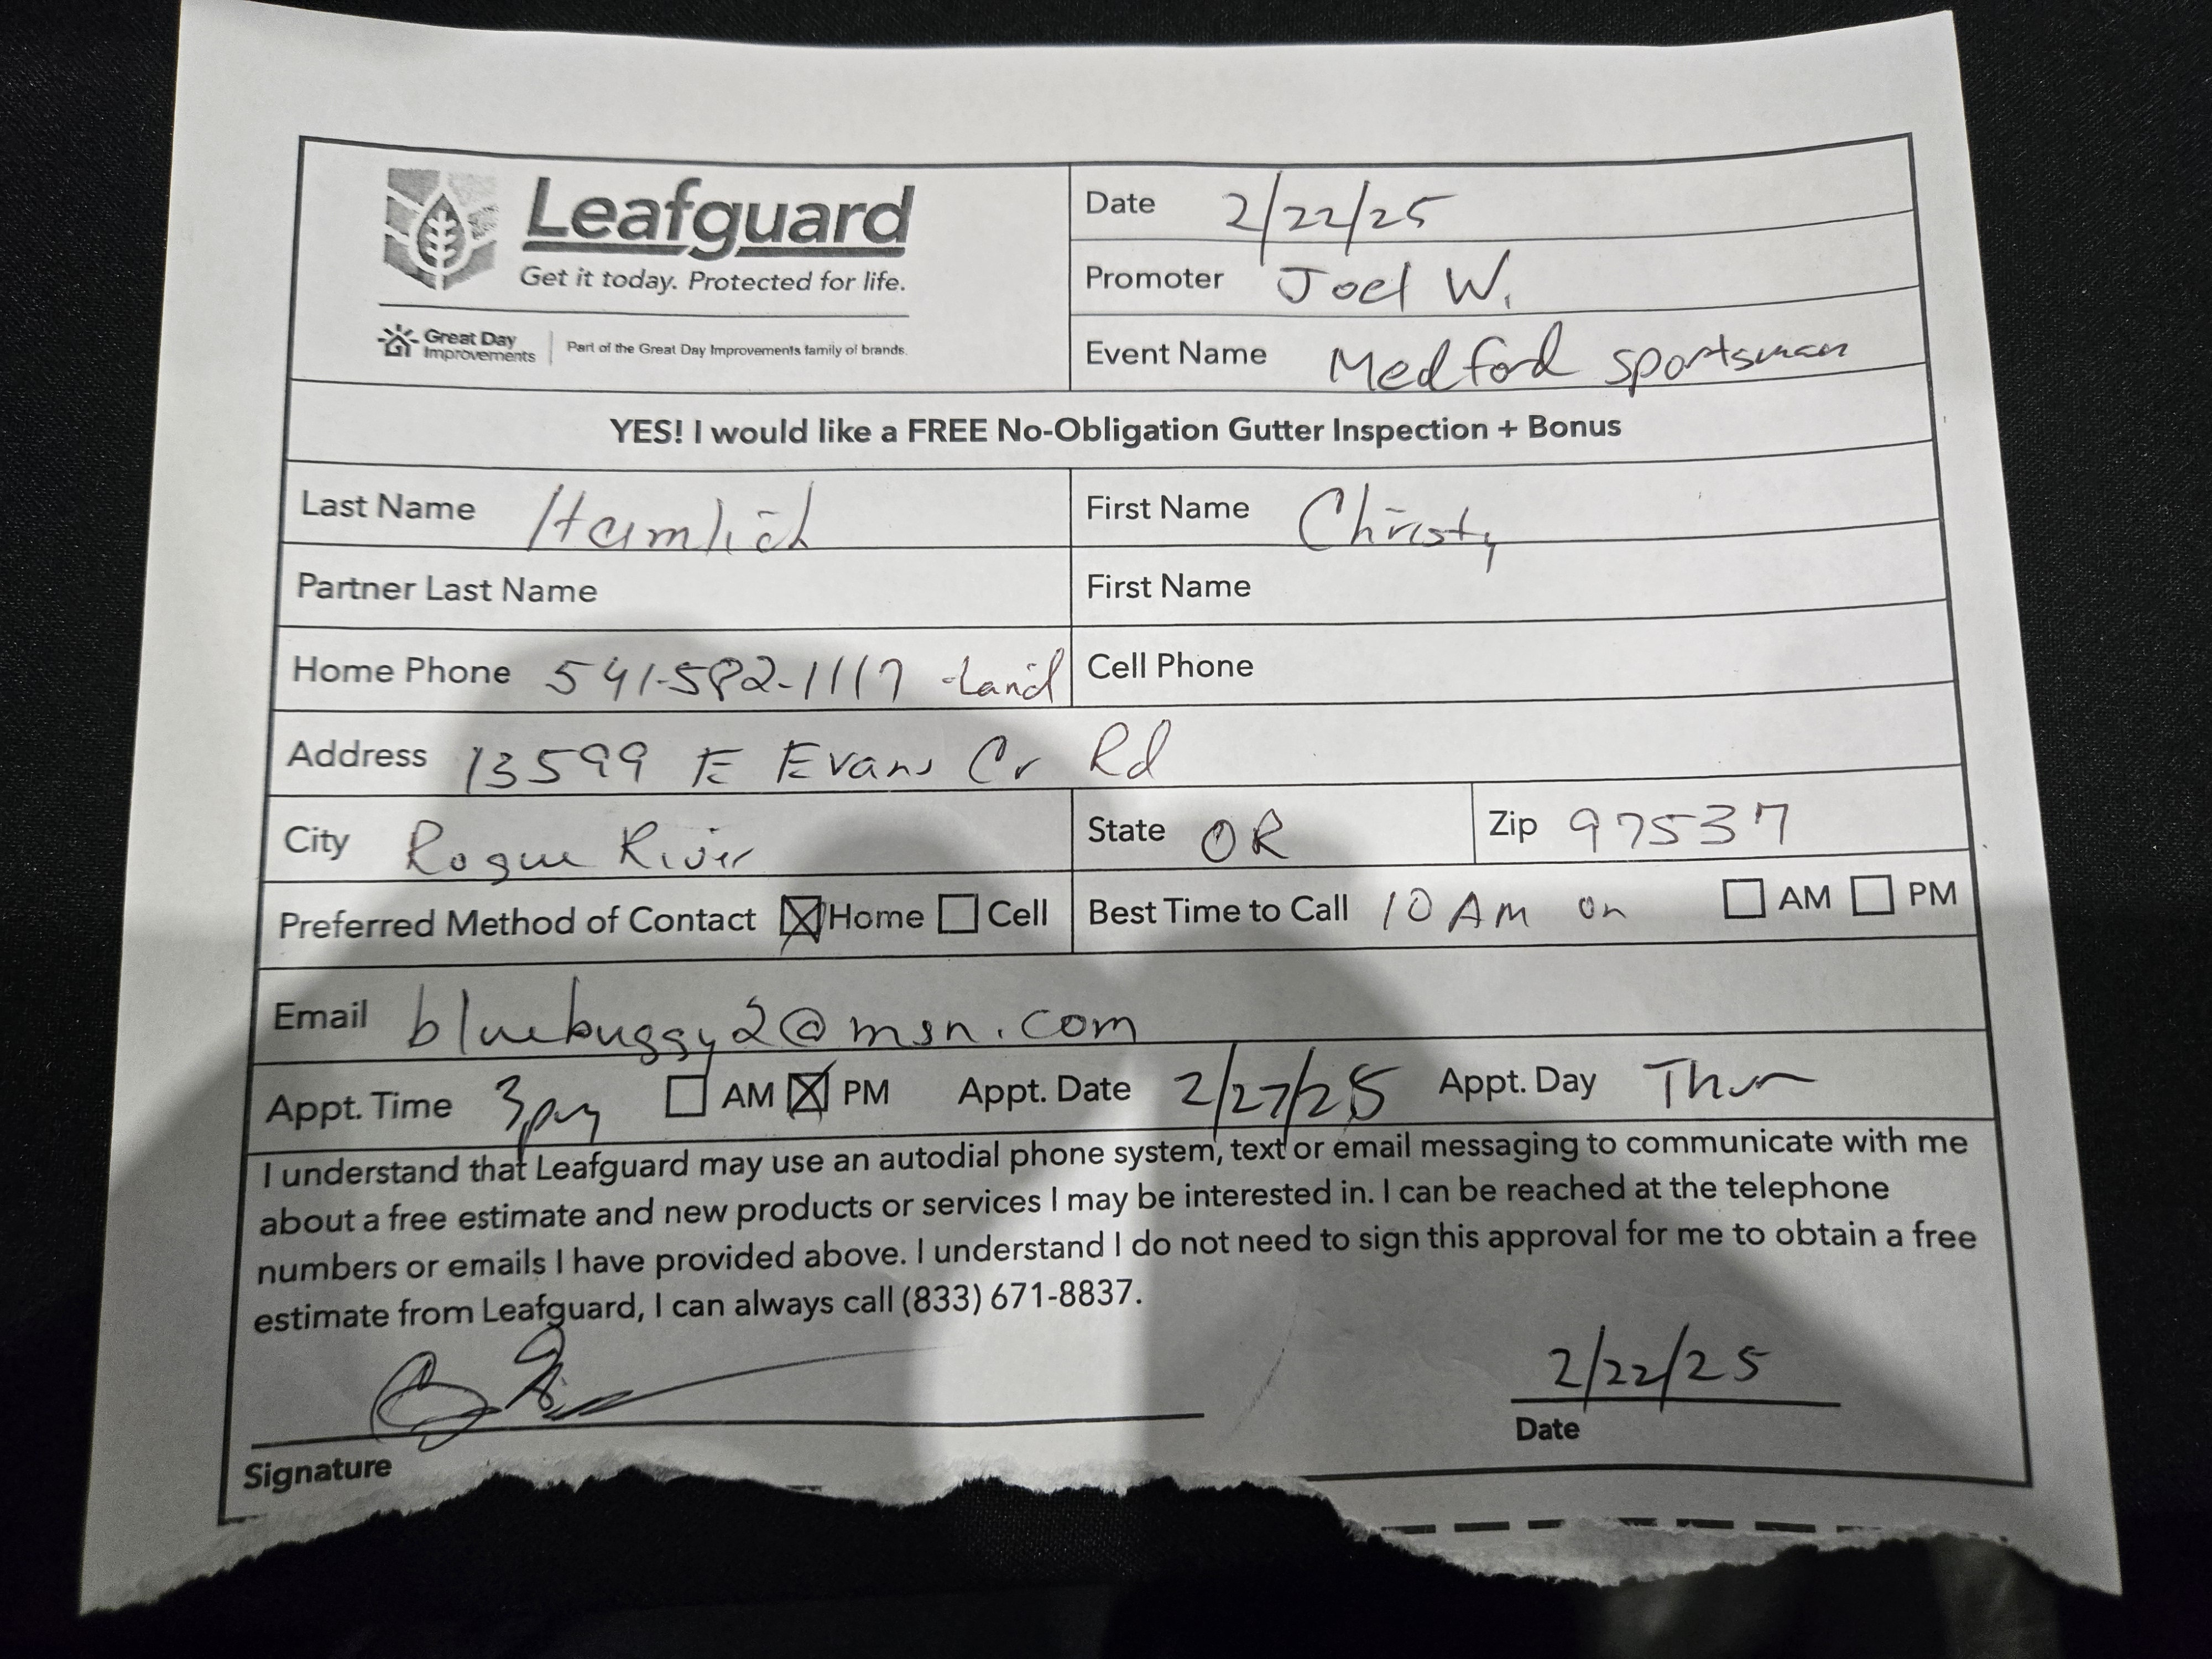 Leafguard
Get it today. Protected for life.
Great Day Improvements | Part of the Great Day Improvements family of brands.
Date 2/22/25
Promoter Joel W.
Event Name Medford sportsman
YES! I would like a FREE No-Obligation Gutter Inspection + Bonus
Last Name First Name Christy
Partner Last Name First Name
Home Phone 541-582-1117 -Land Cell Phone
Address 13599 E Evans Cr Rd
City Rogue River State OR Zip 97537
Preferred Method of Contact ☒ Home ☐ Cell Best Time to Call 10 AM on ☐ AM ☐ PM
Email bluebuggy2@msn.com
Appt. Time 3pm ☐ AM ☒ PM Appt. Date 2/27/25 Appt. Day Thur
I understand that Leafguard may use an autodial phone system, text or email messaging to communicate with me
about a free estimate and new products or services I may be interested in. I can be reached at the telephone
numbers or emails I have provided above. I understand I do not need to sign this approval for me to obtain a free
estimate from Leafguard, I can always call (833) 671-8837.
2/22/25
Signature Date